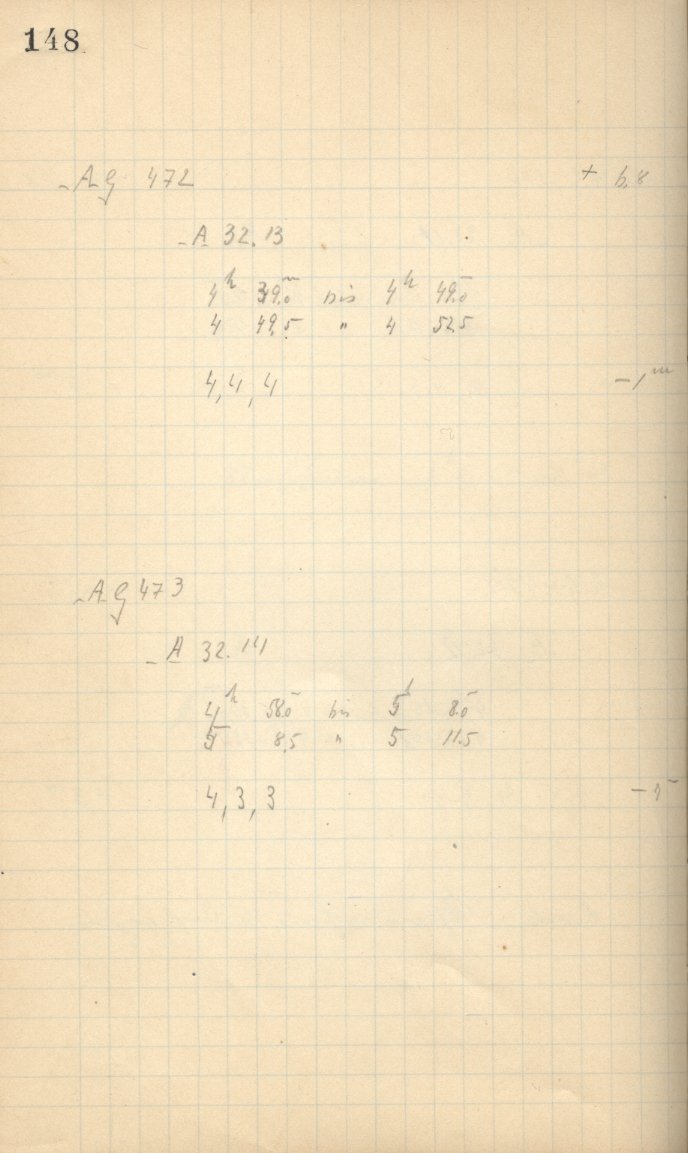 148
AG 472 + 6.8
A 32.13
4h 39.0m bis 4h 49.0
4 49.5 " 4 52.5
4, 4, 4 -1m
AG 473
A 32.14
4h 58.0 bis 5h 8.0
5 8.5 " 5 11.5
4, 3, 3